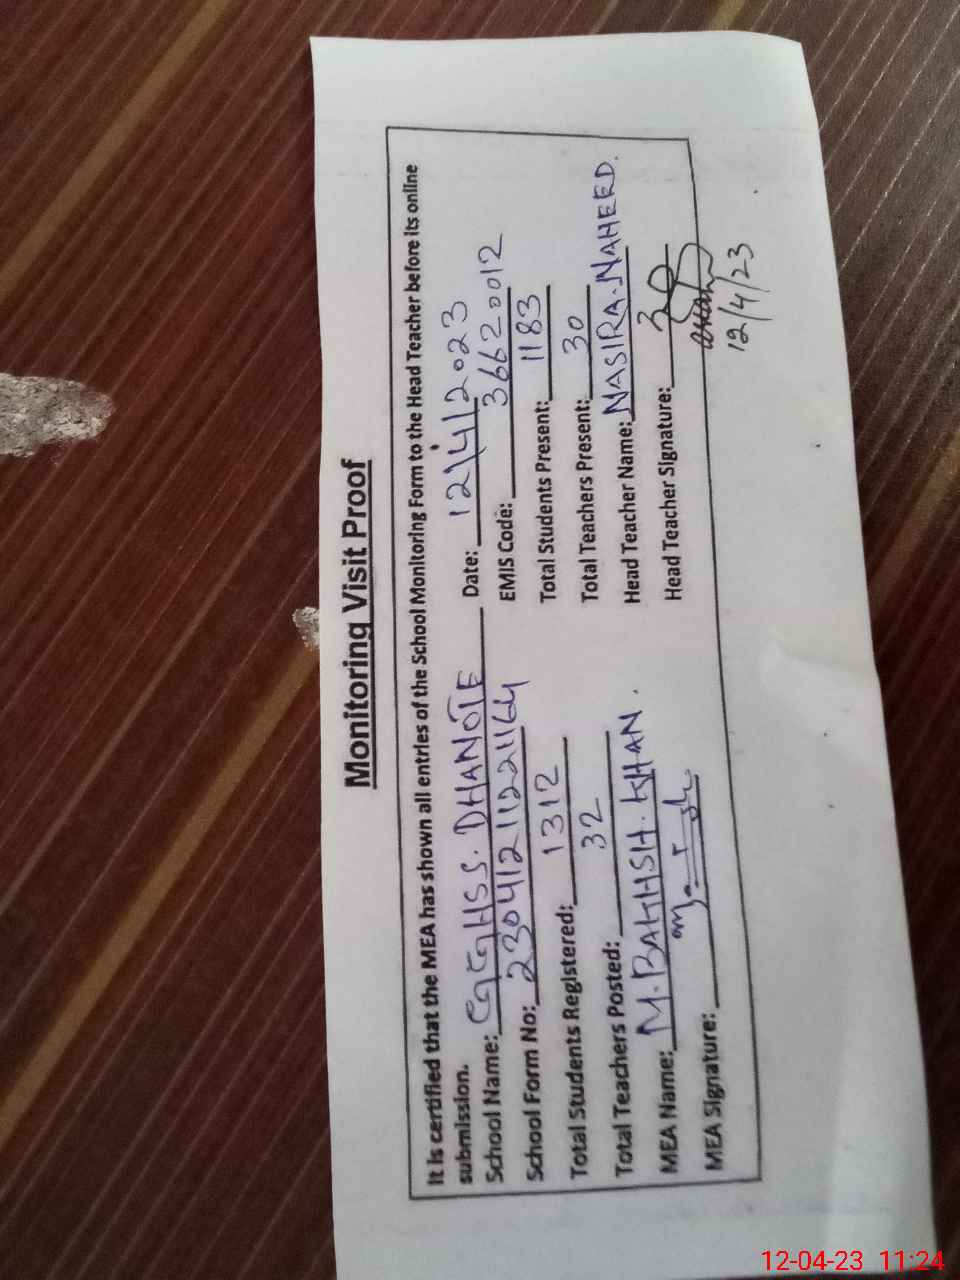 Monitoring Visit Proof
It is certified that the MEA has shown all entries of the School Monitoring Form to the Head Teacher before its online
submission.
School Name: GGHSS. DHANOTE Date: 12/4/2023
School Form No: 23041211221164 EMIS Code: 36620012
Total Students Registered: 1312 Total Students Present: 1183
Total Teachers Posted: 32 Total Teachers Present: 30
MEA Name: M. BAKHSH. KHAN. Head Teacher Name: NASIRA. NAHEED.
MEA Signature: Head Teacher Signature:
12/4/23
12-04-23 11:24